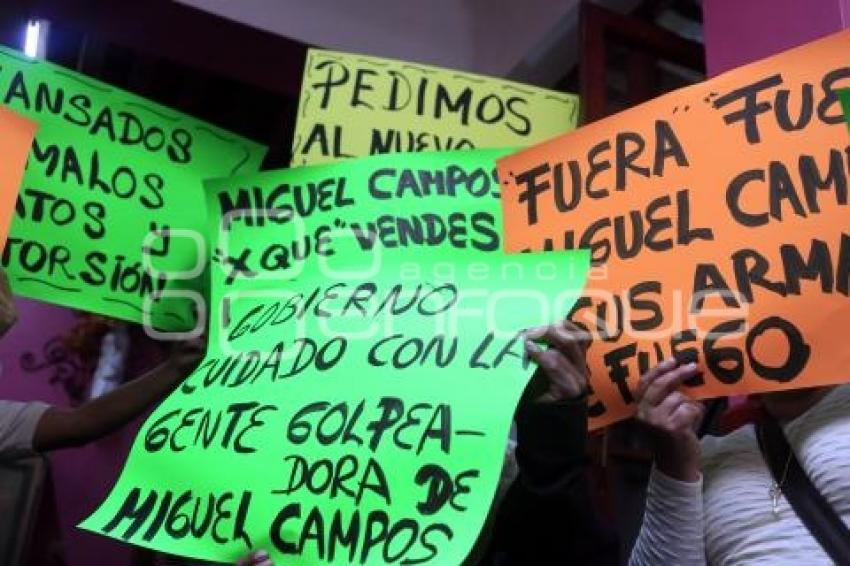 ANSADOS
MALOS
ATOS Y
TORSIÓN
PEDIMOS
AL NUEVO
MIGUEL CAMPOS
"XQUE" VENDES
GOBIERNO
CUIDADO CON LA
GENTE GOLPEA-
DORA DE
MIGUEL CAMPOS
"FUERA" "FUE
MIGUEL CAMP
SUS ARMA
FUEGO
agencia
enfoque